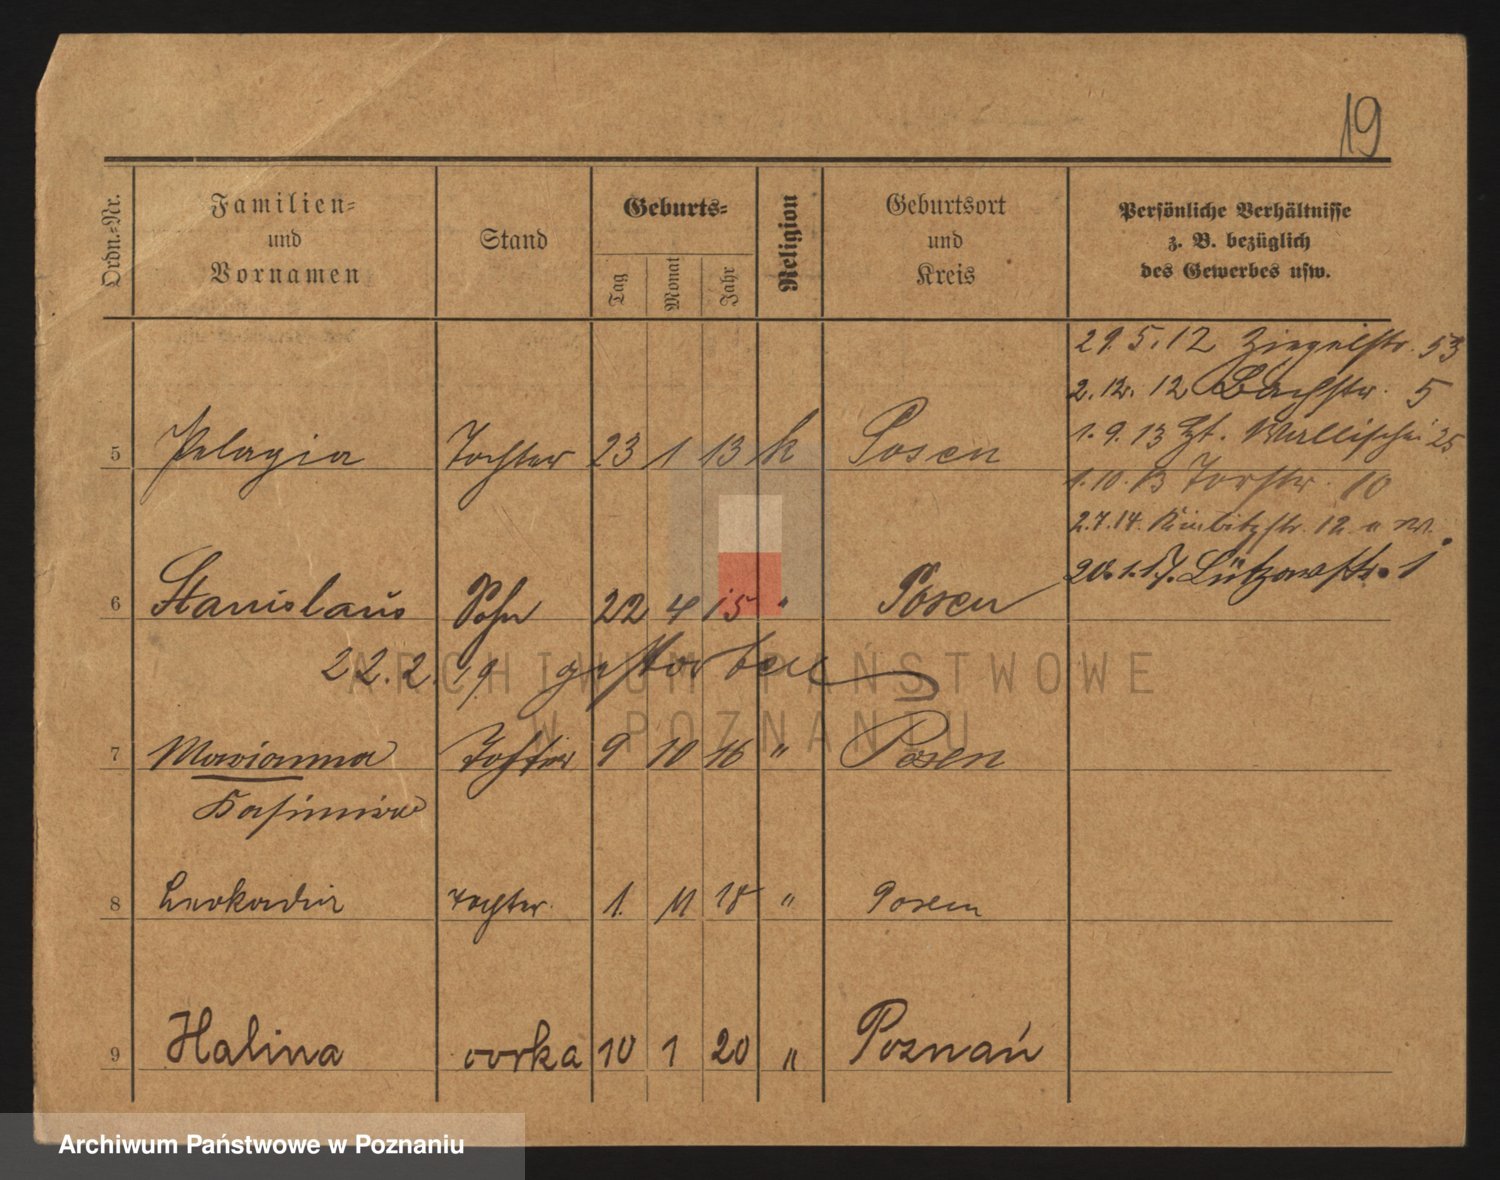 19
Ordn.-Nr.
Familien-
und
Vornamen
Stand
Geburts-
Tag
Monat
Jahr
Religion
Geburtsort
und
Kreis
Persönliche Verhältnisse
z. B. bezüglich
des Gewerbes usw.
29.5.12 Ziegelstr. 53
2.12.12 Bachstr. 5
1.9.13 Wallischei 25
1.10.13 Torstr. 10
2.7.14. 12
20.1.17. Lützowstr. 1
5 Pelagia Tochter 23 1 13 k Posen
6 Stanislaus Sohn 22 4 15 " Posen
22.2.19 gestorben
ARCHIWUM PAŃSTWOWE
W POZNANIU
7 Marianna Tochter 9 10 16 " Posen
Kasimira
8 Leokadia Tochter. 1. 11 18 " Posen
9 Halina corka 10 1 20 " Poznań
Archiwum Państwowe w Poznaniu